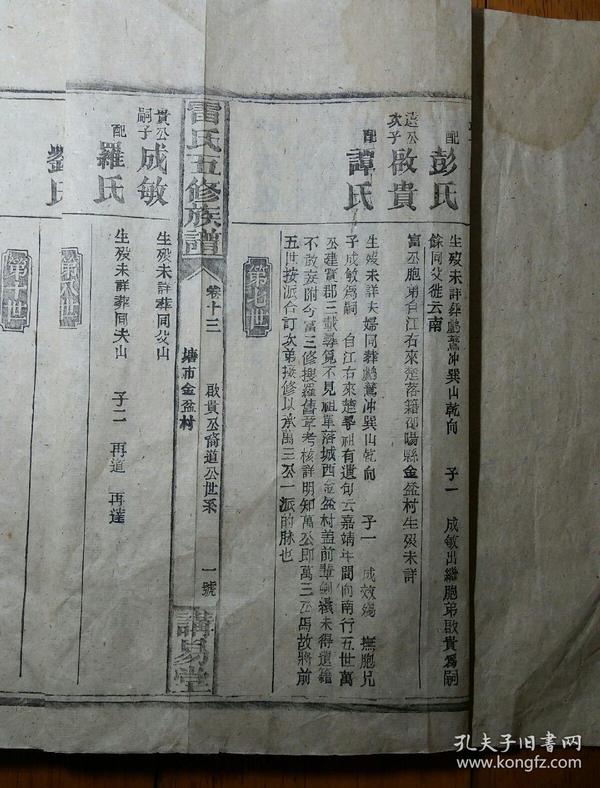 配 彭氏
生歿未詳葬鸕鶿冲巽山乾向 子一 成敏出繼胞弟啟貴爲嗣
餘同父徙云南
遠公次子 啟貴
富公胞弟自江右來楚落籍邵陽縣金盆村生歿未詳
配 譚氏
生歿未詳夫婦同葬鸕鶿冲巽山乾向 子一 成效殤 撫胞兄
子成敏爲嗣 自江右來楚尋祖有遺句云嘉靖年間向南行五世萬
公建寳郡三載尋覓不見祖單落城西金盆村蓋前輩創續未得遺籍
不敢妄附今富三修搜羅舊章考核詳明知萬公即萬三公馬故將前
五世按派合訂次弟接修以承萬三公一派的脉也
第七世
雷氏五修族譜
卷十三
啟貴公裔道公世系
塘市金盆村
一號
講易堂
貴公嗣子 成敏
生歿未詳葬同父山
配 羅氏
生歿未詳葬同夫山 子二 再道 再達
第八世
劉氏
第十世
孔夫子旧书网
kongfz.com